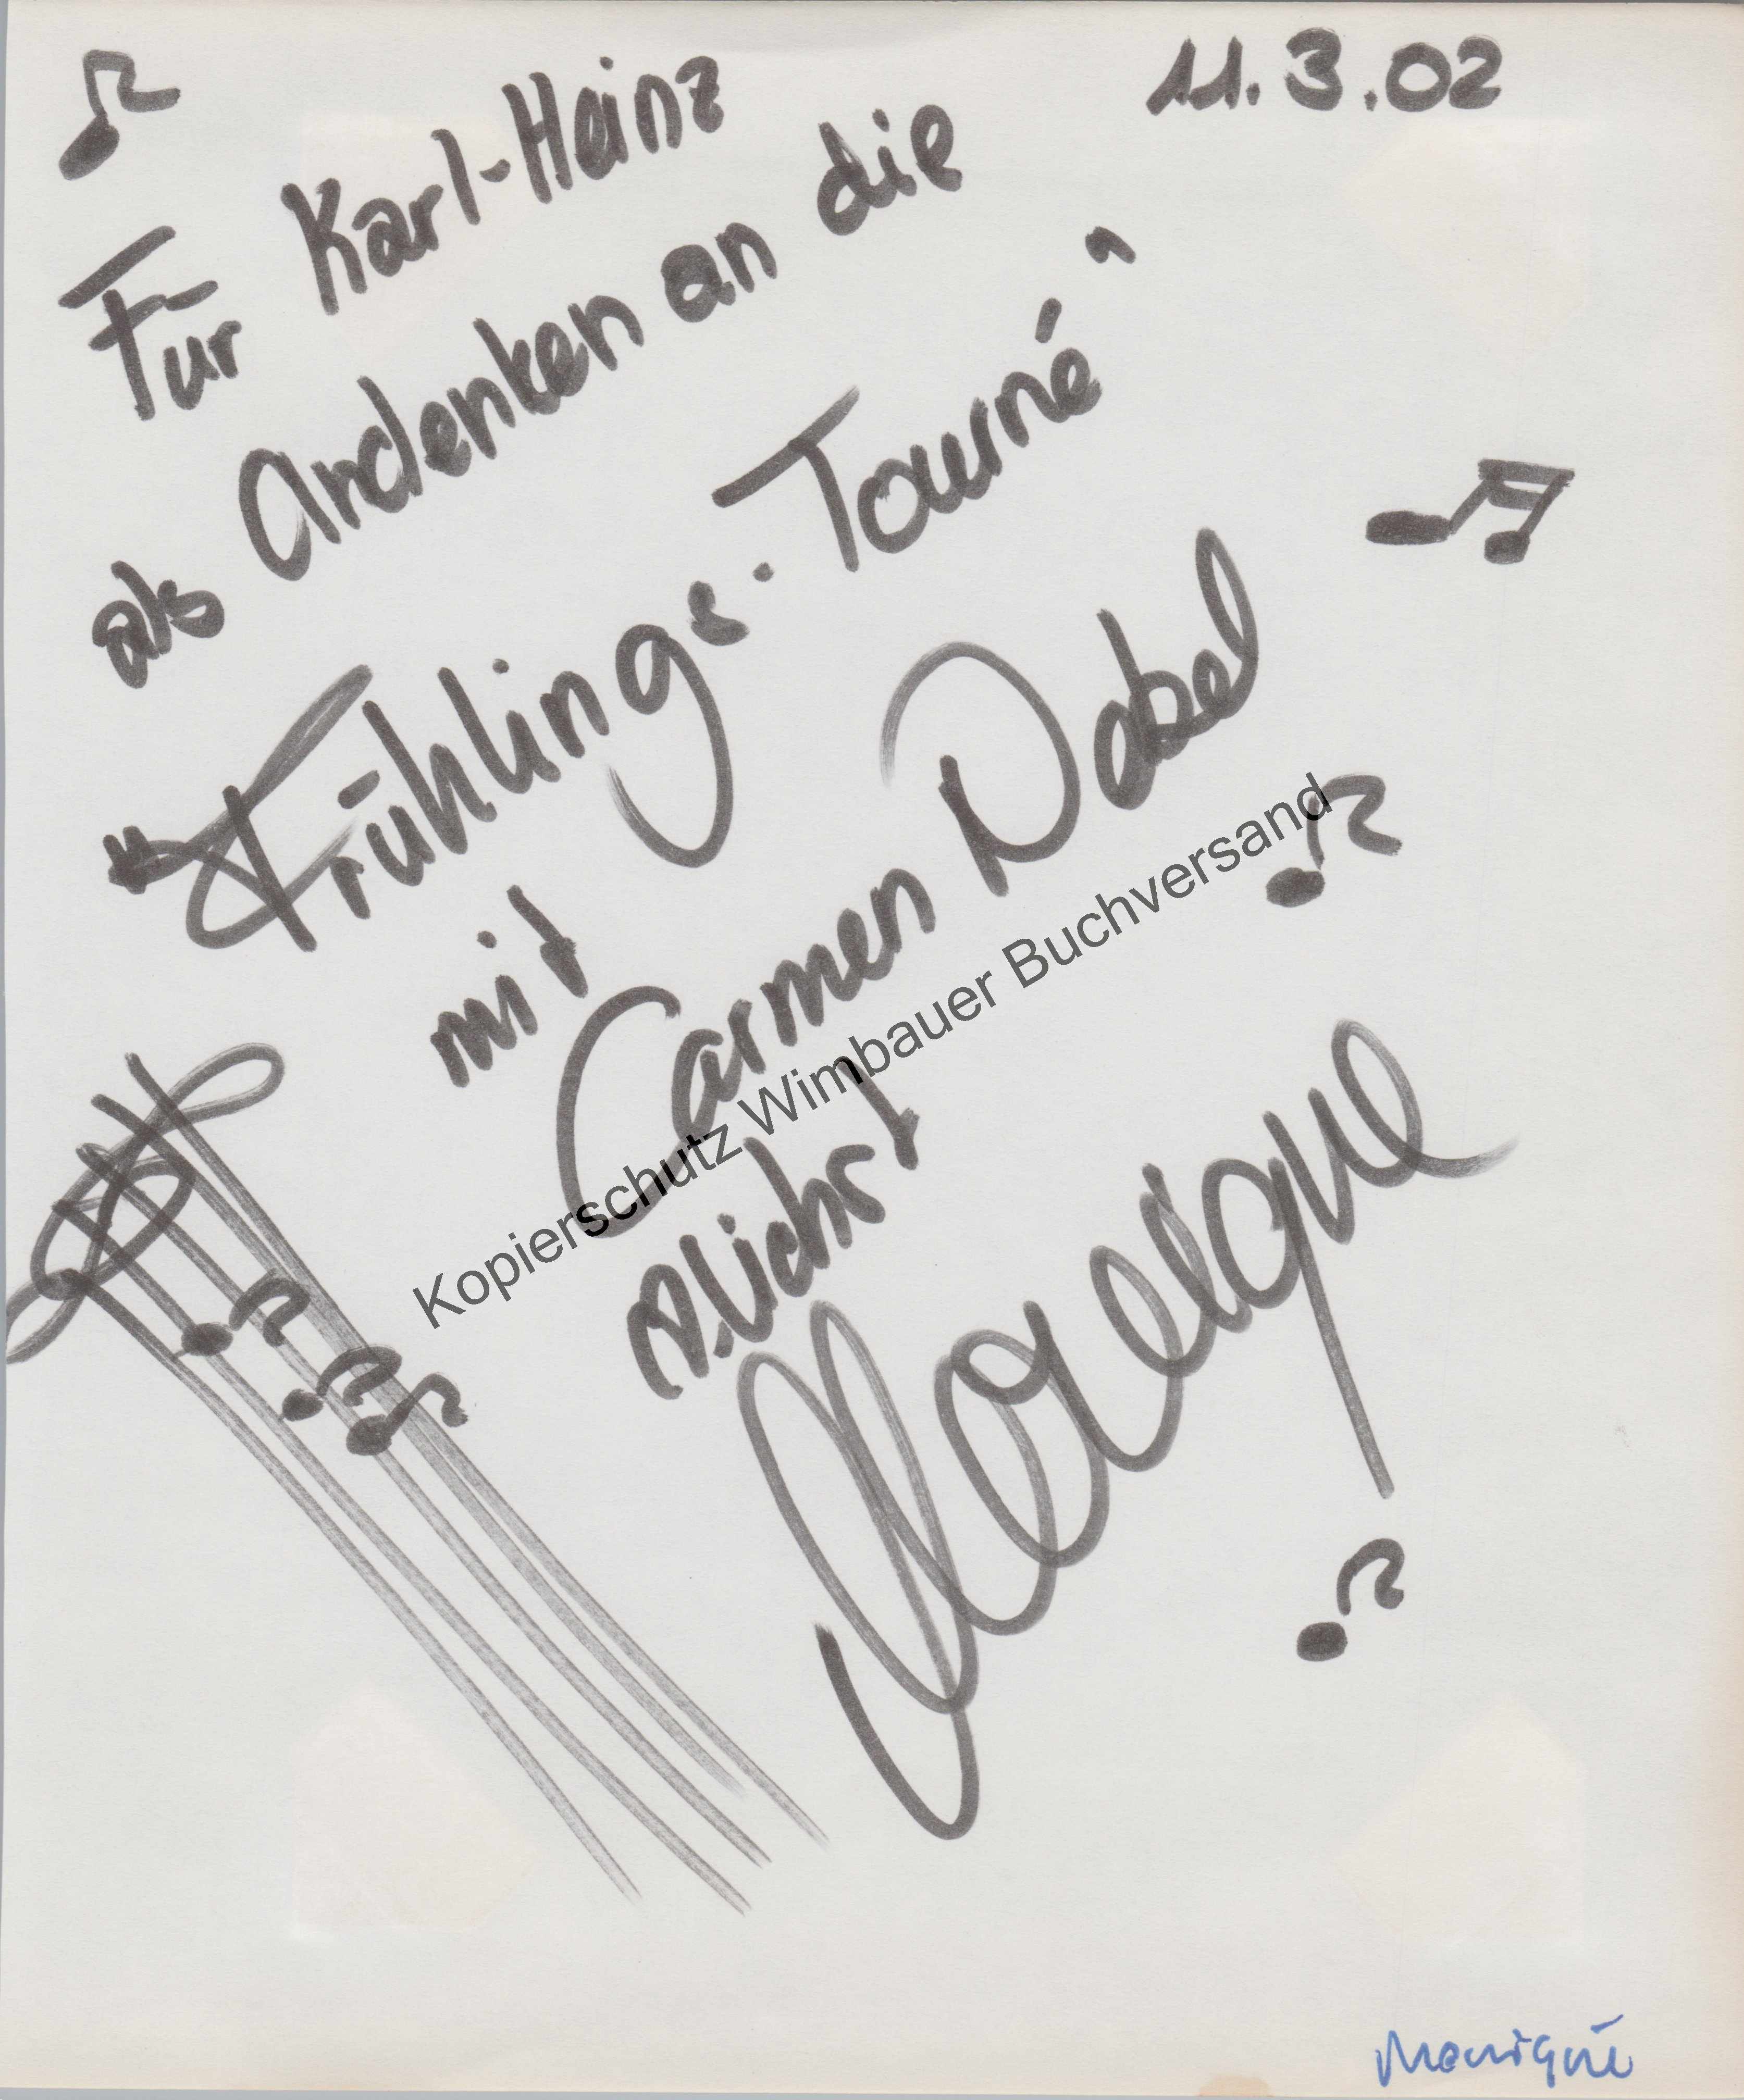 11.3.02
Für Karl-Heinz
als Andenken an die
"Frühlings-Tourné"
mit
Carmen Dabel
Monique
Kopierschutz Wimbauer Buchversand
Monique